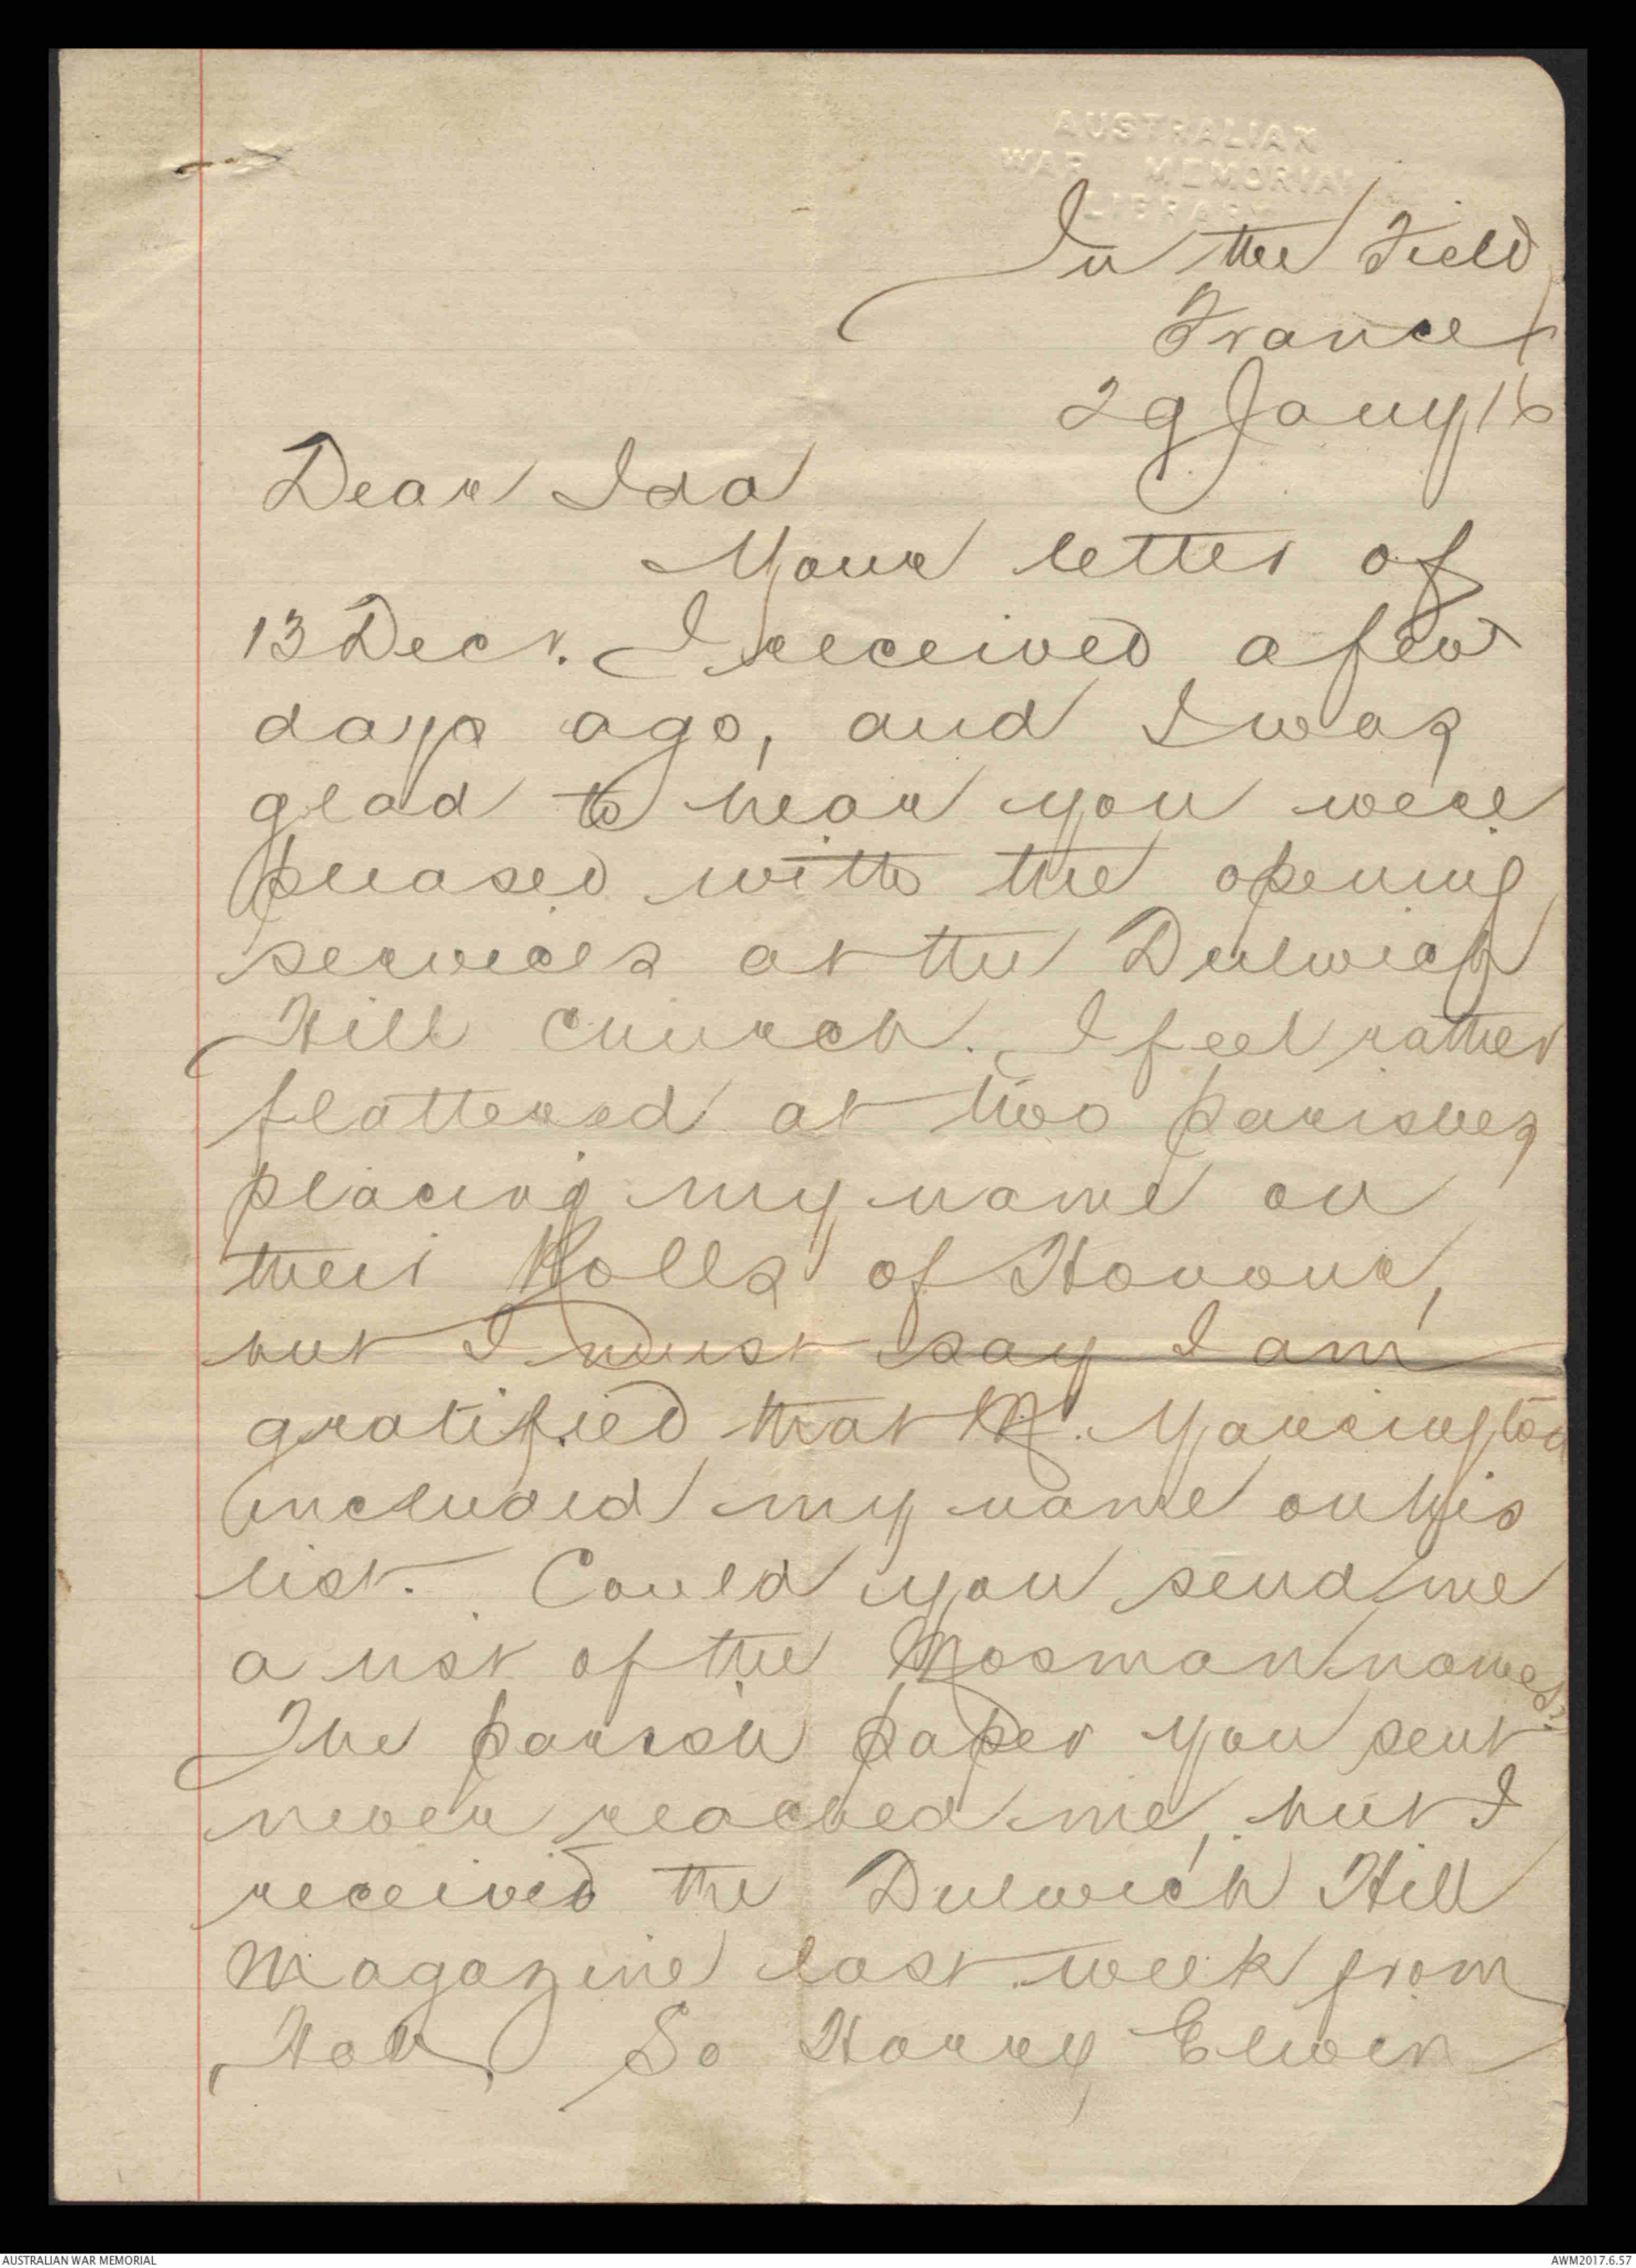 AUSTRALIAN
WAR MEMORIAL
LIBRARY
In the Field
France
29 Jany 16
Dear Ida
Your letter of
13 Decr. I received a few
days ago, and I was
glad to hear you were
pleased with the opening
services at the Dulwich
Hill church. I feel rather
flattered at two parishes
placing my name on
their Rolls of Honour,
but I must say I am
gratified that Mr. Yarrington
included my name on his
list. Could you send me
a list of the Mosman names?
The parish paper you sent
never reached me, but I
received the Dulwich Hill
Magazine last week from
So Harry Elwin
AUSTRALIAN WAR MEMORIAL
AWM2017.6.57